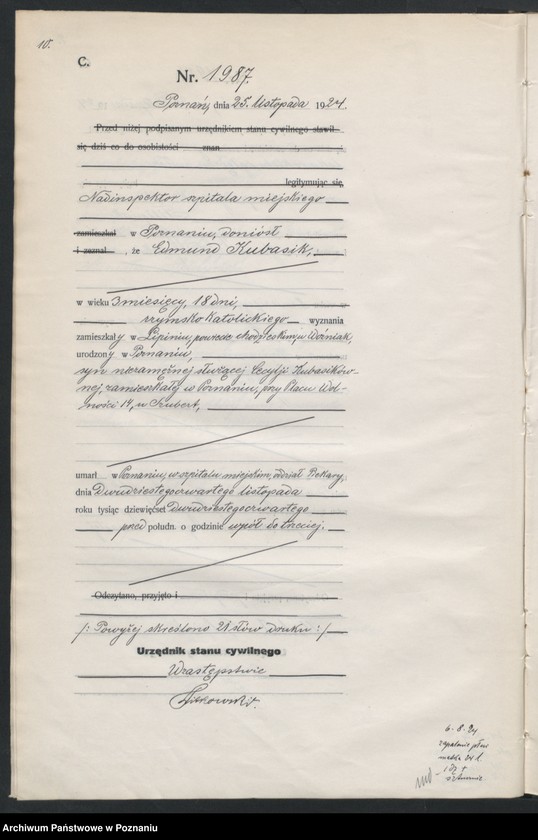 10.
C.
Nr. 1987.
Poznań, dnia 25. listopada 1924.
Przed niżej podpisanym urzędnikiem stanu cywilnego stawił
się dziś co do osobistości znan
legitymując się
Nadinspektor szpitala miejskiego
zamieszkał w Poznaniu, doniósł
i zeznał , że Edmund Kubasik,
w wieku 3 miesięcy, 18 dni,
rzymsko katolickiego wyznania
zamieszkały w Lipiniu, powiecie chodzieskim, u Woźniak,
urodzony w Poznaniu,
syn niezamężnej służącej Cecylji Kubasików-
nej, zamieszkałej w Poznaniu, przy Placu Wol-
ności 14, u Szubert,
umarł w Poznaniu, w szpitalu miejskim, oddział Piekary,
dnia Dwudziestegoczwartego listopada
roku tysiąc dziewięćset dwudziestegoczwartego
przed połudn. o godzinie wpół do trzeciej.
Odczytano, przyjęto i
/: Powyżej skreślono 21 słów druku :/
Urzędnik stanu cywilnego
W zastępstwie
6-8-24
zapalenie płuc
Archiwum Państwowe w Poznaniu